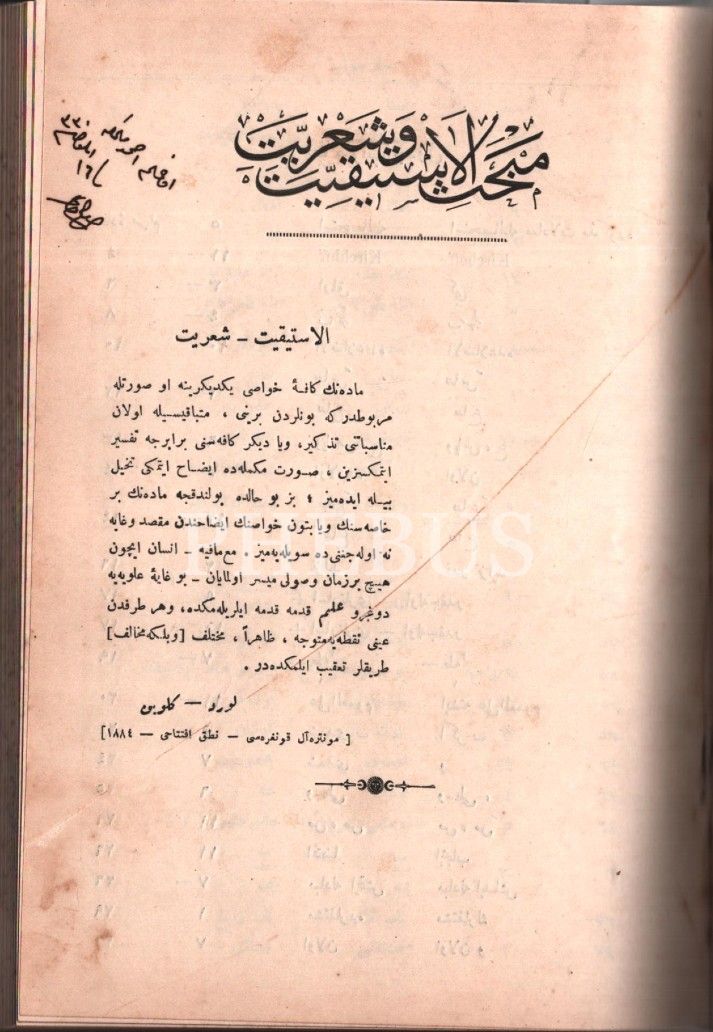 مبحث الاستيقيت وشعريت
الاستيقيت ـ شعريت
ماده‌نك كافۀ خواصی يكديكرينه او صورتله
مربوطدركه بونلردن برينی ، متباقيسيله اولان
مناسباتنی تذكير، ويا ديكر كافه‌سنی برابرجه تفسير
ايتمكسزين ، صورت مكمله‌ده ايضاح ايتمكی تخيل
بيله ايده‌ميز ؛ بز بو حالده بولندقجه ماده‌نك بر
خاصه‌سنك ويا بتون خواصنك ايضاحندن مقصد وغايه
نه اوله‌جغنی ده سويليه‌ميز . مع‌مافيه ـ انسان ايچون
هيچ برزمان وصولی ميسر اولمايان ـ بو غايۀ علويه‌يه
دوغرو علم قدمه قدمه ايلريله‌مكده، وهر طرفدن
عينی نقطه‌يه‌متوجه ، ظاهراً، مختلف [وبلكه‌مخالف]
طريقلر تعقيب ايلمكده‌در .
لورد — كلوين
[ مونتره‌آل قونفره‌سی — نطق افتتاحی — ١٨٨٤]
PHEBUS